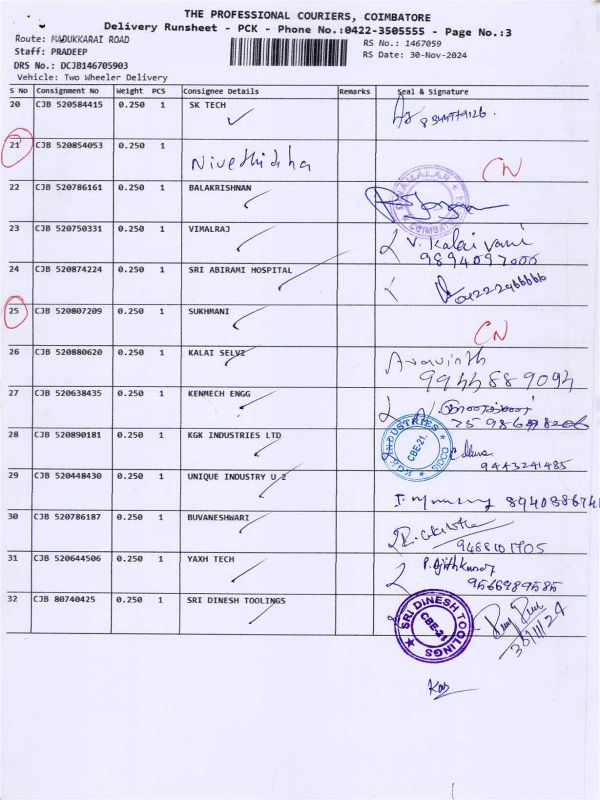 THE PROFESSIONAL COURIERS, COIMBATORE
Delivery Runsheet - PCK - Phone No.:0422-3505555 - Page No.:3
Route: MADUKKARAI ROAD
RS No.: 1467059
Staff: PRADEEP
RS Date: 30-Nov-2024
DRS No.: DCJB146705903
Vehicle: Two Wheeler Delivery
S No Consignment No Weight PCS Consignee Details Remarks Seal & Signature
20 CJB 520584415 0.250 1 SK TECH
21 CJB 520854053 0.250 1 Nivethidha CN
22 CJB 520786161 0.250 1 BALAKRISHNAN
23 CJB 520750331 0.250 1 VIMALRAJ V. Kalai vani
9894097000
24 CJB 520874224 0.250 1 SRI ABIRAMI HOSPITAL 04222466666
25 CJB 520807209 0.250 1 SUKHMANI CN
26 CJB 520880620 0.250 1 KALAI SELVI Aravinth
9944889094
27 CJB 520638435 0.250 1 KENMECH ENGG
28 CJB 520890181 0.250 1 KGK INDUSTRIES LTD KGK INDUSTRIES SIDCO CBE-21.
9443241485
29 CJB 520448430 0.250 1 UNIQUE INDUSTRY U 2
30 CJB 520786187 0.250 1 BUVANESHWARI
9488101705
31 CJB 520644506 0.250 1 YAXH TECH P. Ajithkumar
9566989585
32 CJB 80740425 0.250 1 SRI DINESH TOOLINGS SRI DINESH TOOLINGS CBE-21
30/11/24